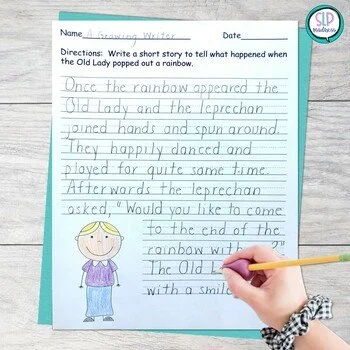 SLP
madness
Name A Growing Writer Date
Directions: Write a short story to tell what happened when
the Old Lady popped out a rainbow.
Once the rainbow appeared the
Old Lady and the leprechan
joined hands and spun around.
They happily danced and
played for quite some time.
Afterwords the leprechan
asked, "Would you like to come
to the end of the
rainbow with
The Old
with a smile